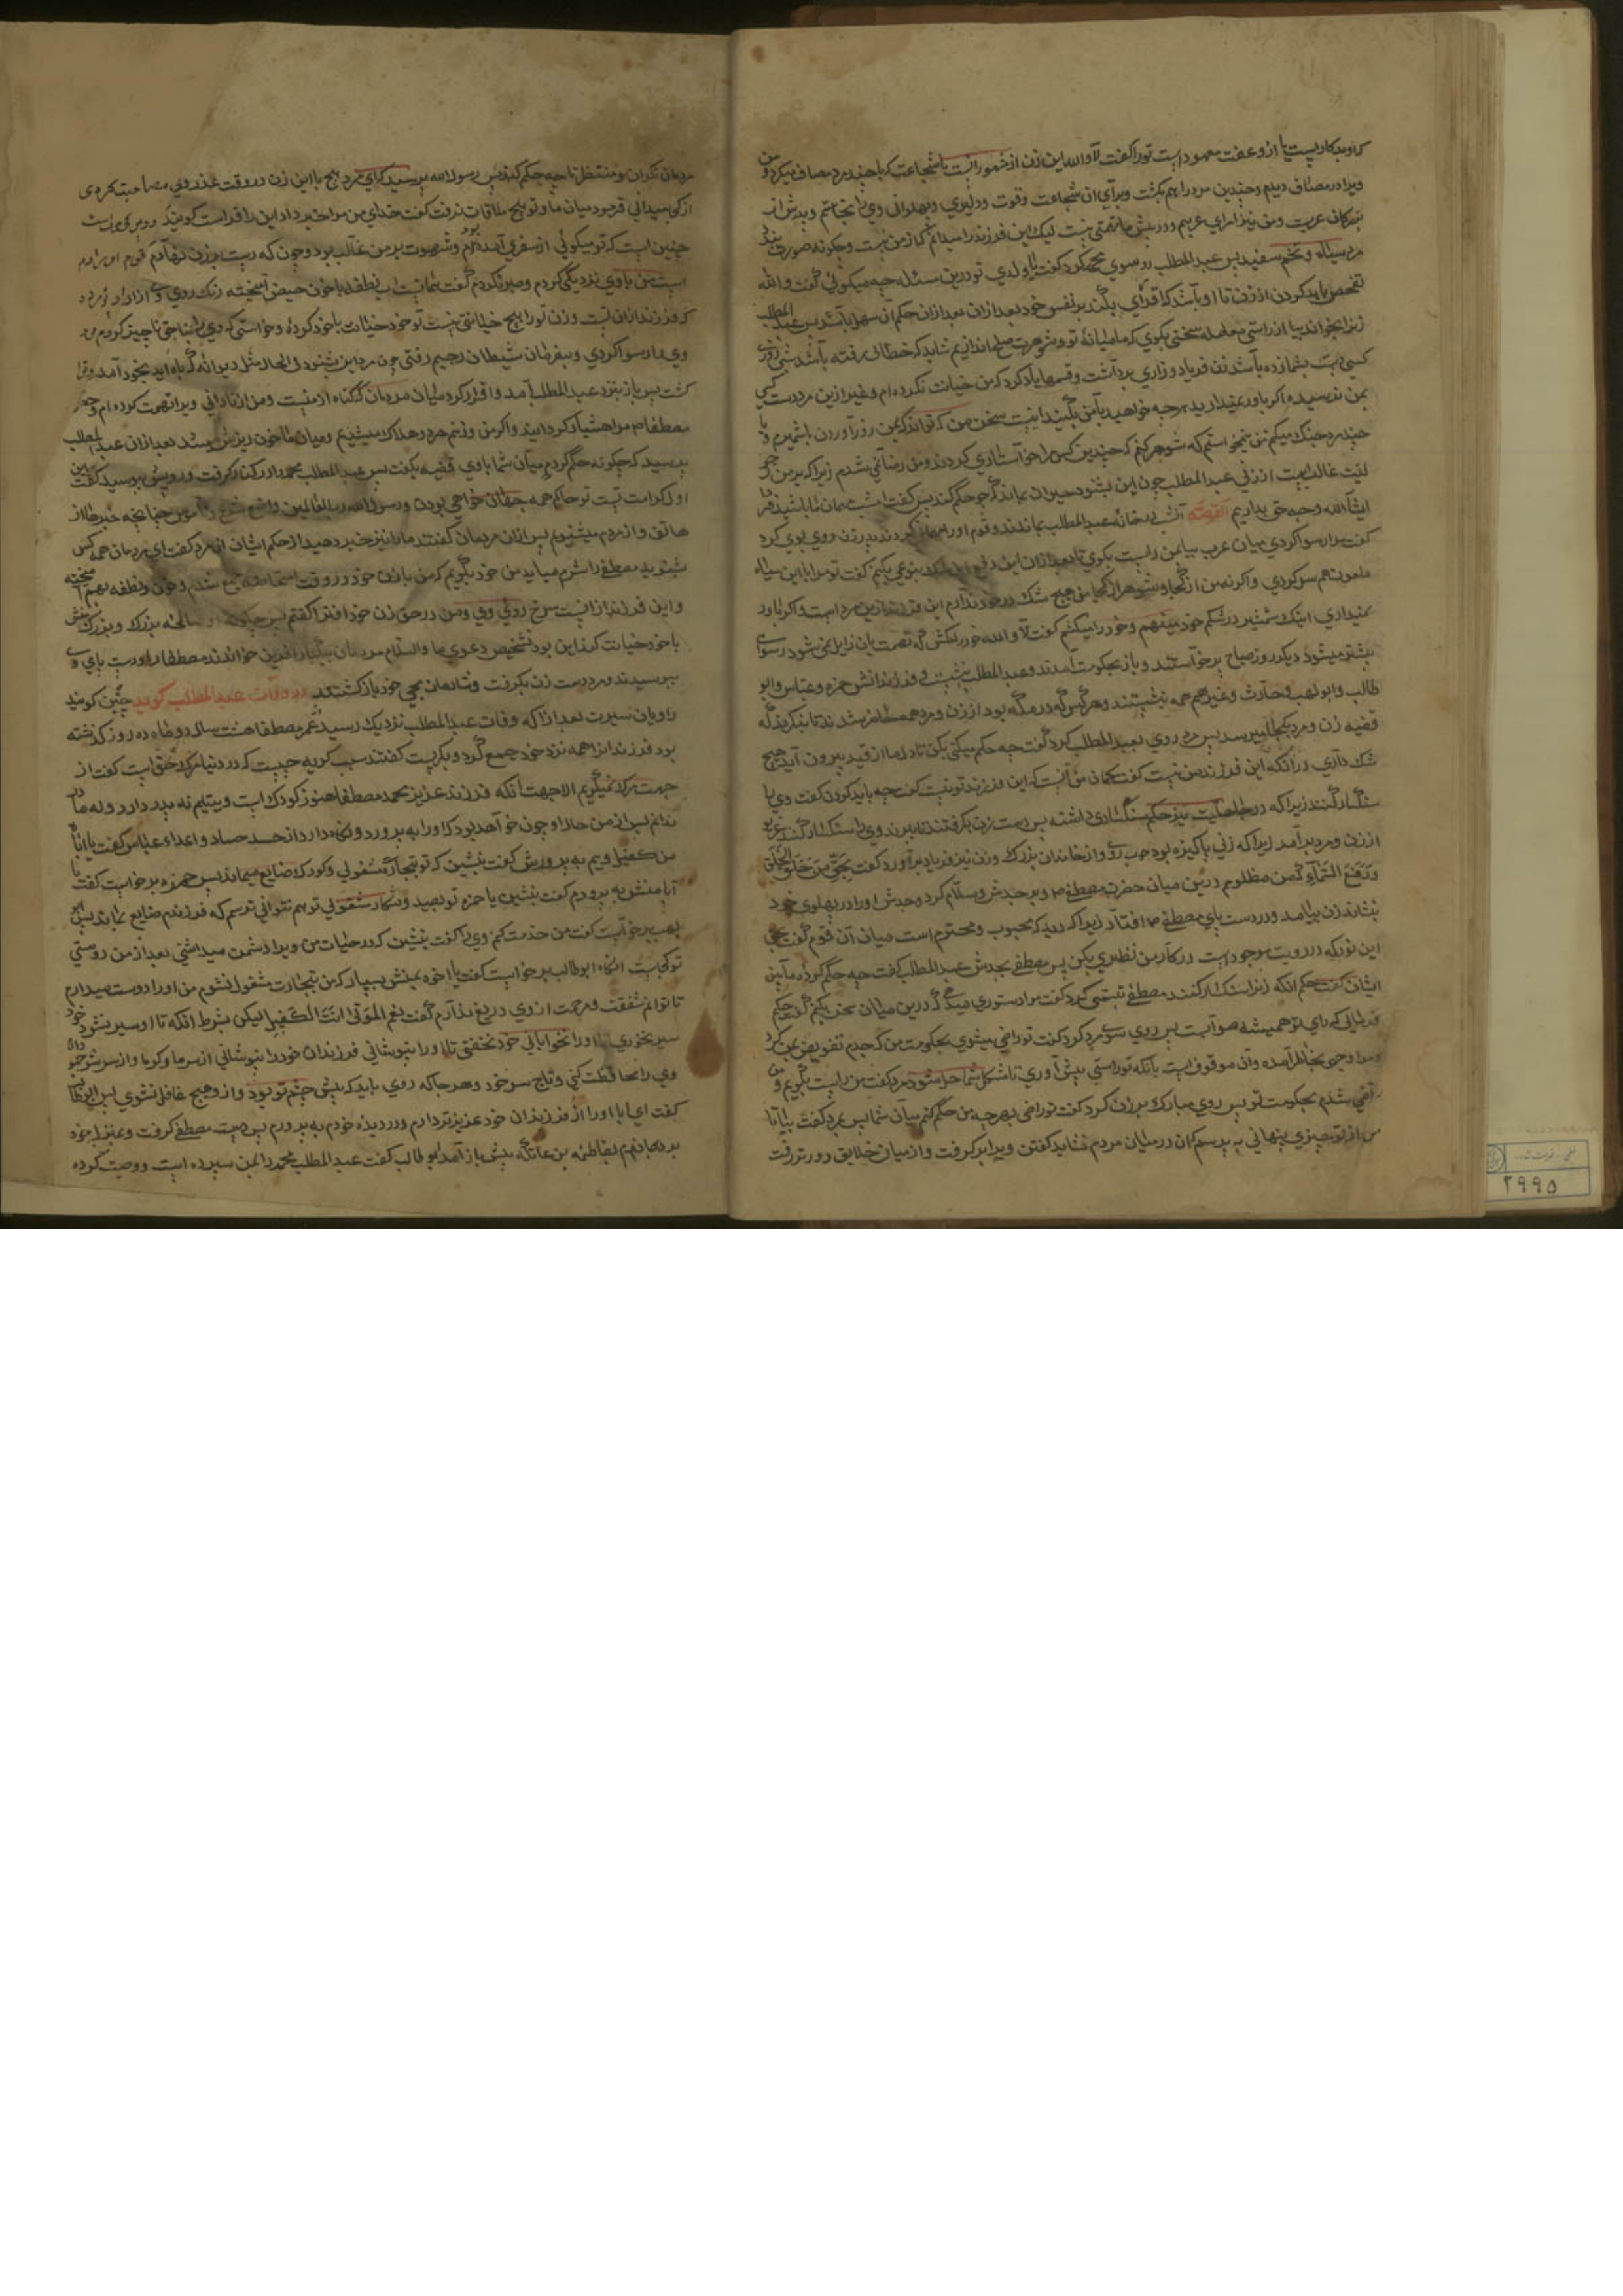 که او بدکار نیست یا از وعفت معمود است تورا کفت لا والله این زن از مشهورانست با شجاعت که با چند مرد مصاف میکرد و من
ویرا در مصاف دیدم و چندین مرد را بهم بکشت و برای ان شجاعت و قوت و دلیری و پهلوانی وی را بخاستم و پدرش از
بزرکان عربست و من نیز امرای عربیم و در پیش ما تهمتی نیست لیک این فرزند را میدانم که از من نیست و چکونه صورت بندد
مرد سیاه و تخم سفید پس عبد المطلب رو سوی محمد کرد کفت یا ولدی تو درین مسئله چه میکوئی کفت والله
تفحص باید کردن از زن تا او باشد که اقرای بکند بر نفس خود بعد ازان بعد ازان حکم آن سهل باشد پس عبد المطلب
زنرا بخواند بیا از راستی معامله سخنی بکوی که ما میانهٔ تو و شوهرت صلح اندازیم شاید که خطائی رفته باشد شبی دزدی
کسی بهت بشما زده باشد زن فریاد و زاری برداشت و قسمها یاد کرد که من خیانت نکرده ام و غیر ازین مرد دست کسی
بمن نرسیده اکر باور نمیدارید هر چه خواهید با من بکنید اینست سخن من که تواند که بمن زور آوردن با شمیرم و با
چند مرد جنک میکنم من نمیخواستم که شوهر کنم که چندین کس مرا خواستاری کردند و من راضی نمی شدم زیرا که بر من
لیت غالب است از زنی عبد المطلب چون این بشنود حیران بماند که چو حکم کند پس کفت امشب مهمان ما باشید فردا
انشآ الله وجه حق بداریم القصه آن شب در خانهٔ عبد المطلب بماندند و قوم او را مهمان کردند مرد زن روی بوی کرد
کفت مرا رسوا کردی میان عرب بیا بمن راست بکوی تا بعد ازان این دفع بنوعی بکنیم کفت تو مرا با این سیاه
ملعون همسر کردی و اکر نه من از کجا و شوهر از کجا من هیچ شک در خود ندارم این فرزند ازین مرد است و اکر باور
نمیداری اینک شمشیر در شکم خود مینهم و خود را میکشم کفت لا والله خود را مکش که تهمت بان زایل نمی شود رسوای
بیشتر میشود دیکر روز صباح برخواستند و باز بحکومت آمدند و عبد المطلب بنشست و فرزندانش حمزه و عباس و ابو
طالب و ابو لهب و حارث و غیرهم همه بنشستند و هر کس که در مکه بود از زن و مرد همه حاضر شدند تا بنکرند که
قضیه زن و مرد بکجا میرسد پس مرد روی بعبد المطلب کرد کفت چه حکم میکنی بکن تا دل ما از قید بیرون آید هیچ
شک داری در انکه این فرزند من نیست کفت کمان من آنست که این فرزند تو نیست کفت چه باید کردن کفت وی را
سنکسار کنند زیرا که در جاهلیت نیز حکم سنکساری داشته پس دست زن بکرفتند تا ببرند وی را سنکسار کنند غریو
از زن و مرد برآمد زیرا که زنی پاکیزه بود خوب روی و از خاندان بزرک و زن نیز فریاد برآورد کفت بحق من خلق الخلق
و رفع السّمآء که من مظلومم درین میان حضرت مصطفی ص بر جدش و سلام کرد و جدش او را در پهلوی خود
بنشاند زن بیامد و در دست بای مصطفی ص افتاد زیرا که دید که محبوب و محترم است میان آن قوم کفت بحق
این نور که در رویت موجود است در کار من نظری بکن پس مصطفی بجدش عبد المطلب کفت چه حکم کرده مابین
ایشان کفت حکم انکه زنرا سنکسار کنند مصطفی تبسمی کرد کفت مرا دستوری میدهی که درین میان سخن بکنم کفت حکم
فرمائی که رای تو همیشه صوابست پس روی سوی مرد کرد کفت تو راضی میشوی بحکومت من که جدم تفویض بمن کرد
و مرا وجهی بخاطر آمده وان موقوفست بآنکه تو راستی بیش آوری تا شکل شما حل شود مرد کفت من راست بکویم و من
راضی شدم بحکومت تو پس روی مبارک بر زن کرد کفت تو راضی بهر چه من حکم کنم میان شما پس بمرد کفت بیا تا
من از تو چیزی پنهانی بپرسم کان در میان مردم نشاید کفتن ویرا بر کرفت و از میان خلایق دورتر رفت
مردمان نکران و منتظر تا چه حکم کند پس رسول الله پرسید که ای مرد هیچ با این زن در وقت عذر وی مصاحبت کردی
از کی میدانی فرمود میان ما و تو هیچ ملاقات نرفت کفت خدای من مرا خبر داد این را فراست کویند
چنین است که تو میکوئی از سفری آمده بودم و شهوت بر من غالب بود و چون که دست بر زن نهادم
با وی نزدیکی کردم و صبر نکردم کفت نطفه با خون حیض آمیخته رنک روی وی
که فرزند ازان تست و زن تو را هیچ خیانتی نیست تو خود خیانت با خود کردهٔ و خواستی که وی را بناحق ناچیز کردم
وی را رسوا کردی و بفرمان شیطان رجیم رفتی چون مرد این بشنود فی الحال مثل دیوانه که باه اید بخود آمد
کشت پس باز بنزد عبد المطلب آمد و اقرار کرد میان مردمان که کناه از منست و من از نادانی ویرا تهمت کرده ام و حضرت
مصطفا م مرا هشیار کردانید و اکر من و زنم هر دو هلاک میشدیم و میان ما خون ریزش میشد بعد ازان عبد المطلب
پرسید که چکونه حکم کردی میان شما با وی قضیه بکفت پس عبد المطلب محمد را در کنار کرفت و رویش ببوسید کفت این
اول کرامت تست تو حاکم همه جهان خواهی بودن و رسول الله رب العالمین چنانچه خبرها از
هاتف و از مردم میشنوم پس ازان مردمان کفتند ما را نیز خبر دهید از حکم ایشان ان مرد کفت ای مردمان همه کس
بشنوید مصطفی را شرم میاید من خود بکویم که من با زن خود در وقت جمع شدم و خون و نطفه بهم آمیخته
و این فرزند ازانست سرخ روی وی و من در حق زن خود افترا کفتم بزرک و بزرک
با خود خیانت کند این بود تشخیص دعوی ما والسلام مردمان بیکبار آفرین خواندند مصطفا را و دست پای وی
ببوسیدند و مرد دست زن بکرفت و شادمان بجی خود بازکشتند در وفات عبد المطلب کوید چنین کویند
راویان سیرت بعد ازانکه وفات عبد المطلب نزدیک رسید عمر مصطفا هشت سال و دو ماه و ده روز کذشته
بود فرزندانرا همه نزد خود جمع کرد و بکریست کفتند سبب کریه چیست که در دنیا مرک حق است کفت از
جهت مرک نمیکریم الا جهت انکه فرزند عزیز محمد مصطفا هنوز کودک است و یتیم نه پدر دارد و نه مادر
ندانم پس از من حال او چون خواهد بود که او را به پرورد و نکاه دارد از حسد حساد و اعداء عباس کفت یا ابتاه
من کفیل ویم به پرورش کفت بنشین که تو بتجارت مشغولی و کودک ضایع میماند پس حمزه برخواست کفت یا
ابا منش به پرورم کفت بنشین یا حمزه تو بصید و شکار مشغولی تو هم نتوانی ترسم که فرزندم ضایع بماند پس ابو
لهب برخواست کفت من خدمت کنم وی را کفت بنشین که در حیات من ویرا دشمن میداشتی بعد از من دوستی
تو کجاست انکاه ابو طالب برخواست کفت یا اخوه بمنش بسپار که من بتجارت مشغول نشوم من او را دوست میدارم
تا توانم شفقت و مرحمت از وی دریغ ندارم کفت نعم المولی انت الکفیل لیکن بشرط انکه تا او سیر نشود خود
سیر نخوری تا او را نخوابانی خود نخفتی تا او را نپوشانی فرزندان خود را نپوشانی از سرما و کرما و از سر شر خود
وی را محافظت کنی و تاج سر خود و هر جا که روی باید که پیش چشم تو بود و از وی هیچ غافل نشوی پس ابو طالب
کفت ای بابا او را از فرزندان خود عزیزتر دارم و در دیدهٔ خودم به پرورم پس دست مصطفی کرفت و بمنزل خود
برد بفاطمه بن عاتکه پیش باز آمد ابو طالب کفت عبد المطلب محمد را بمن سپرده است و وصیت کرده
۲۹۹۵